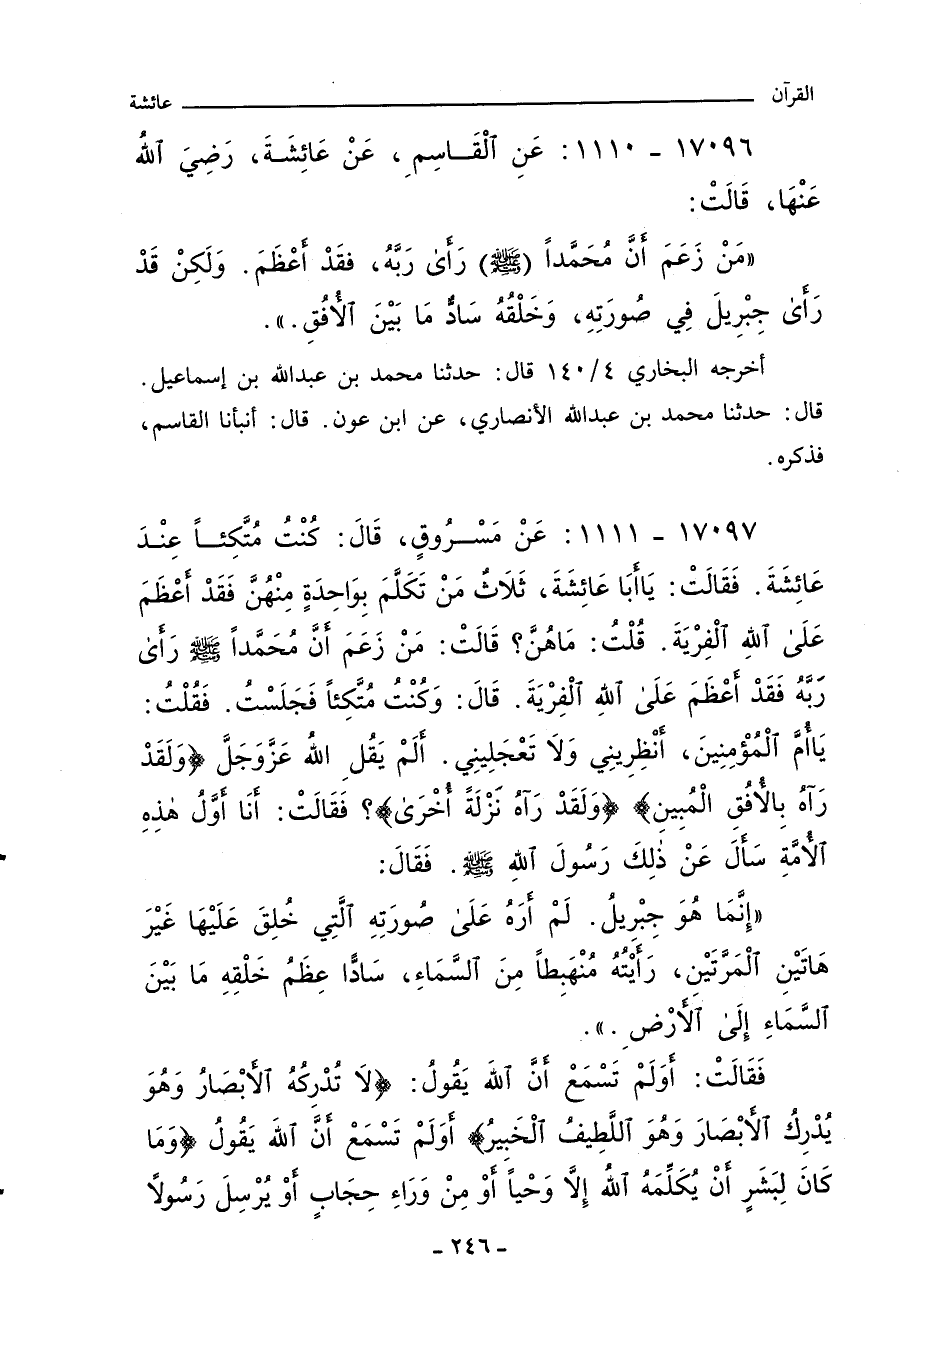 القرآن ــــــــــ عائشة
١٧٠٩٦ - ١١١٠: عَنِ ٱلْقَـاسِمِ، عَنْ عَائِشَةَ، رَضِيَ ٱللهُ
عَنْهَا، قَالَتْ:
«مَنْ زَعَمَ أَنَّ مُحَمَّداً (ﷺ) رَأَىٰ رَبَّهُ، فقَدْ أَعْظَمَ. وَلَكِنْ قَدْ
رَأَىٰ جِبْرِيلَ فِي صُورَتِهِ، وَخَلْقُهُ سَادٌّ مَا بَيْنَ ٱلْأُفُقِ.».
أخرجه البخاري ١٤٠/٤ قال: حدثنا محمد بن عبدالله بن إسماعيل.
قال: حدثنا محمد بن عبدالله الأنصاري، عن ابن عون. قال: أنبأنا القاسم،
فذكره.
١٧٠٩٧ - ١١١١: عَنْ مَسْـرُوقٍ، قَالَ: كُنْتُ مُتَّكِئـاً عِنْـدَ
عَائِشَةَ. فَقَالَتْ: يَاأَبَا عَائِشَةَ، ثَلَاثٌ مَنْ تَكَلَّمَ بِوَاحِدَةٍ مِنْهُنَّ فَقَدْ أَعْظَمَ
عَلَىٰ ٱللهِ ٱلْفِرْيَةَ. قُلْتُ: مَاهُنَّ؟ قَالَتْ: مَنْ زَعَمَ أَنَّ مُحَمَّداً ﷺ رَأَىٰ
رَبَّهُ فَقَدْ أَعْظَمَ عَلَىٰ ٱللهِ ٱلْفِرْيَةَ. قَالَ: وَكُنْتُ مُتَّكِئاً فَجَلَسْتُ. فَقُلْتُ:
يَاأُمَّ ٱلْمُؤْمِنِينَ، أَنْظِرِينِي وَلَا تَعْجَلِينِي. أَلَمْ يَقُلِ اللهُ عَزَّوَجَلَّ ﴿وَلَقَدْ
رَآهُ بِالْأُفُقِ الْمُبِينِ﴾ ﴿وَلَقَدْ رَآهُ نَزْلَةً أُخْرَىٰ﴾؟ فَقَالَتْ: أَنَا أَوَّلُ هٰذِهِ
ٱلْأُمَّةِ سَأَلَ عَنْ ذٰلِكَ رَسُولَ ٱللهِ ﷺ. فَقَالَ:
«إِنَّمَا هُوَ جِبْرِيلُ. لَمْ أَرَهُ عَلَىٰ صُورَتِهِ ٱلَّتِي خُلِقَ عَلَيْهَا غَيْرَ
هَاتَيْنِ ٱلْمَرَّتَيْنِ، رَأَيْتُهُ مُنْهَبِطاً مِنَ ٱلسَّمَاءِ، سَادًّا عِظَمُ خَلْقِهِ مَا بَيْنَ
ٱلسَّمَاءِ إِلَىٰ ٱلْأَرْضِ.».
فَقَالَتْ: أَوَلَمْ تَسْمَعْ أَنَّ ٱللهَ يَقُولُ: ﴿لَا تُدْرِكُهُ ٱلْأَبْصَارُ وَهُوَ
يُدْرِكُ ٱلْأَبْصَارَ وَهُوَ ٱللَّطِيفُ ٱلْخَبِيرُ﴾ أَوَلَمْ تَسْمَعْ أَنَّ ٱللهَ يَقُولُ ﴿وَمَا
كَانَ لِبَشَرٍ أَنْ يُكَلِّمَهُ ٱللهُ إِلَّا وَحْياً أَوْ مِنْ وَرَاءِ حِجَابٍ أَوْ يُرْسِلَ رَسُولاً
- ٢٤٦ -